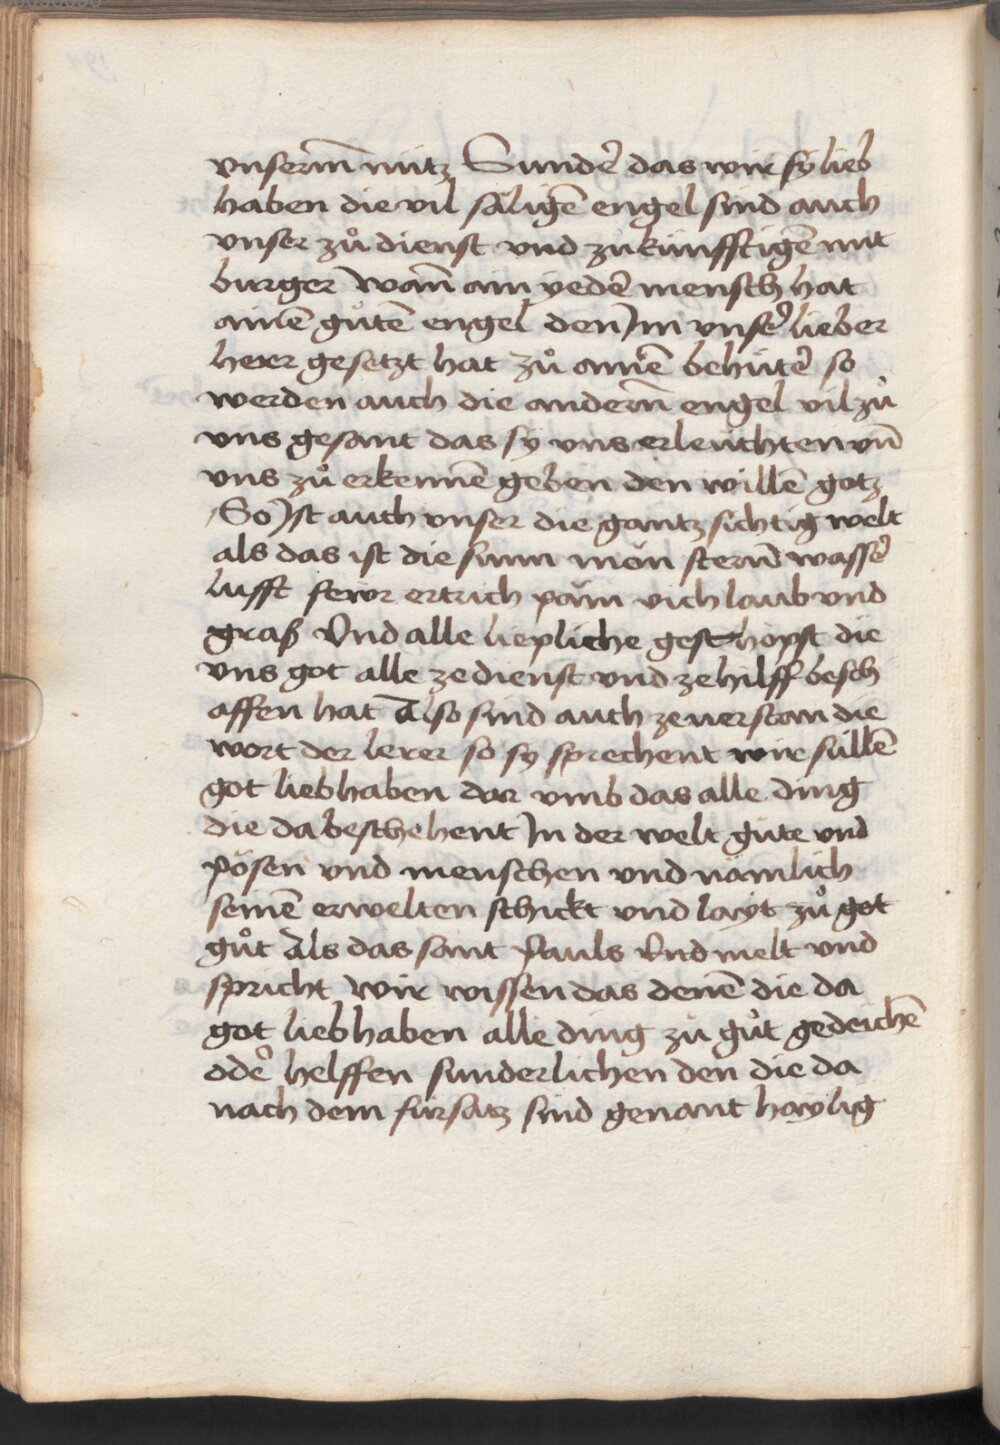 vnserm̄ nutz Sundẽ das wir sy lieb
haben die vil säligē engel sind auch
vnser zů dienst vnd zukünfftigē mit
burger Wan̄ ain yedē mensch hat
ainē gůtē engel den Jm vnsẽ lieber
herr gesetzt hat zů ainē behütẽ so
werden auch die andern̄ engel vil zů
vns gesant das sy vns erleuchten vn̄
vns zů erkennē geben den willē gotz
So Jst auch vnser die gantz sichtig welt
als das ist die sunn mön stern̄ wassẽ
lufft fewr ertrich päm vich laub vnd
graß Vnd alle liepliche geschöpft die
vns got alle ze dienst vnd ze hilff besch
affen hat Also sind auch ze uerstan die
wort der lerer so sy sprechent wir süllē
got lieb haben dar vmb das alle ding
die da beschehent Jn der welt gute vnd
pösen vnd menschen vnd nämlich
seinē erwelten schickt vnd layt zů got
gůt Als das sant Pauls Vnd melt vnd
spricht wir wissen das denē die da
got lieb haben alle ding zů gůt gedeichē
odẽ helffen sunderlichen den die da
nach dem fürsatz sind genant haylig